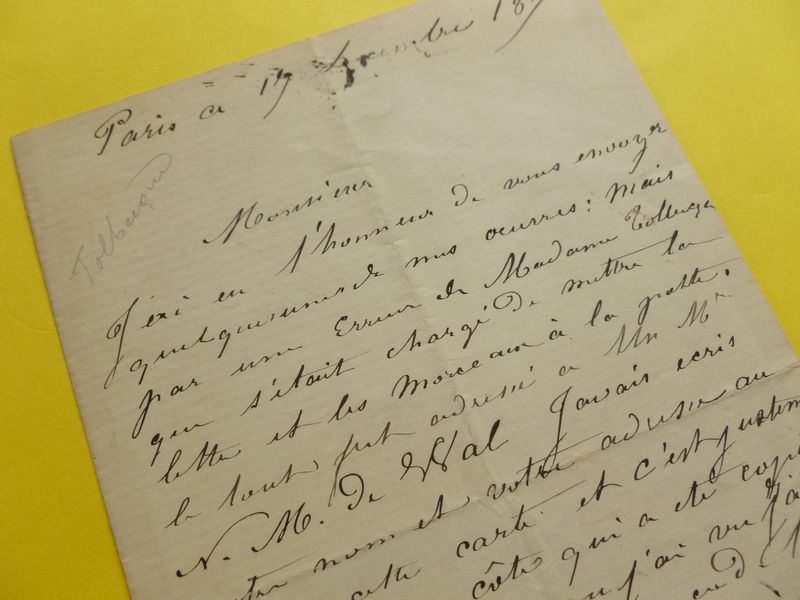 Paris ce 17 18
Tolbecque
Monsieur
J'ai eu l'honneur de vous envoyer
quelques unes de mes oeuvres: mais
par une Erreur de Madame Tolbecque
qui s'était chargé de mettre la
lettre et les morceaux à la poste,
le tout fut adressé a Un Mr
N. M. de Wal J'avais ecris
nom et votre adresse au
cette carte et c'est justem
côté qui a été cop
j'ai vu j'a